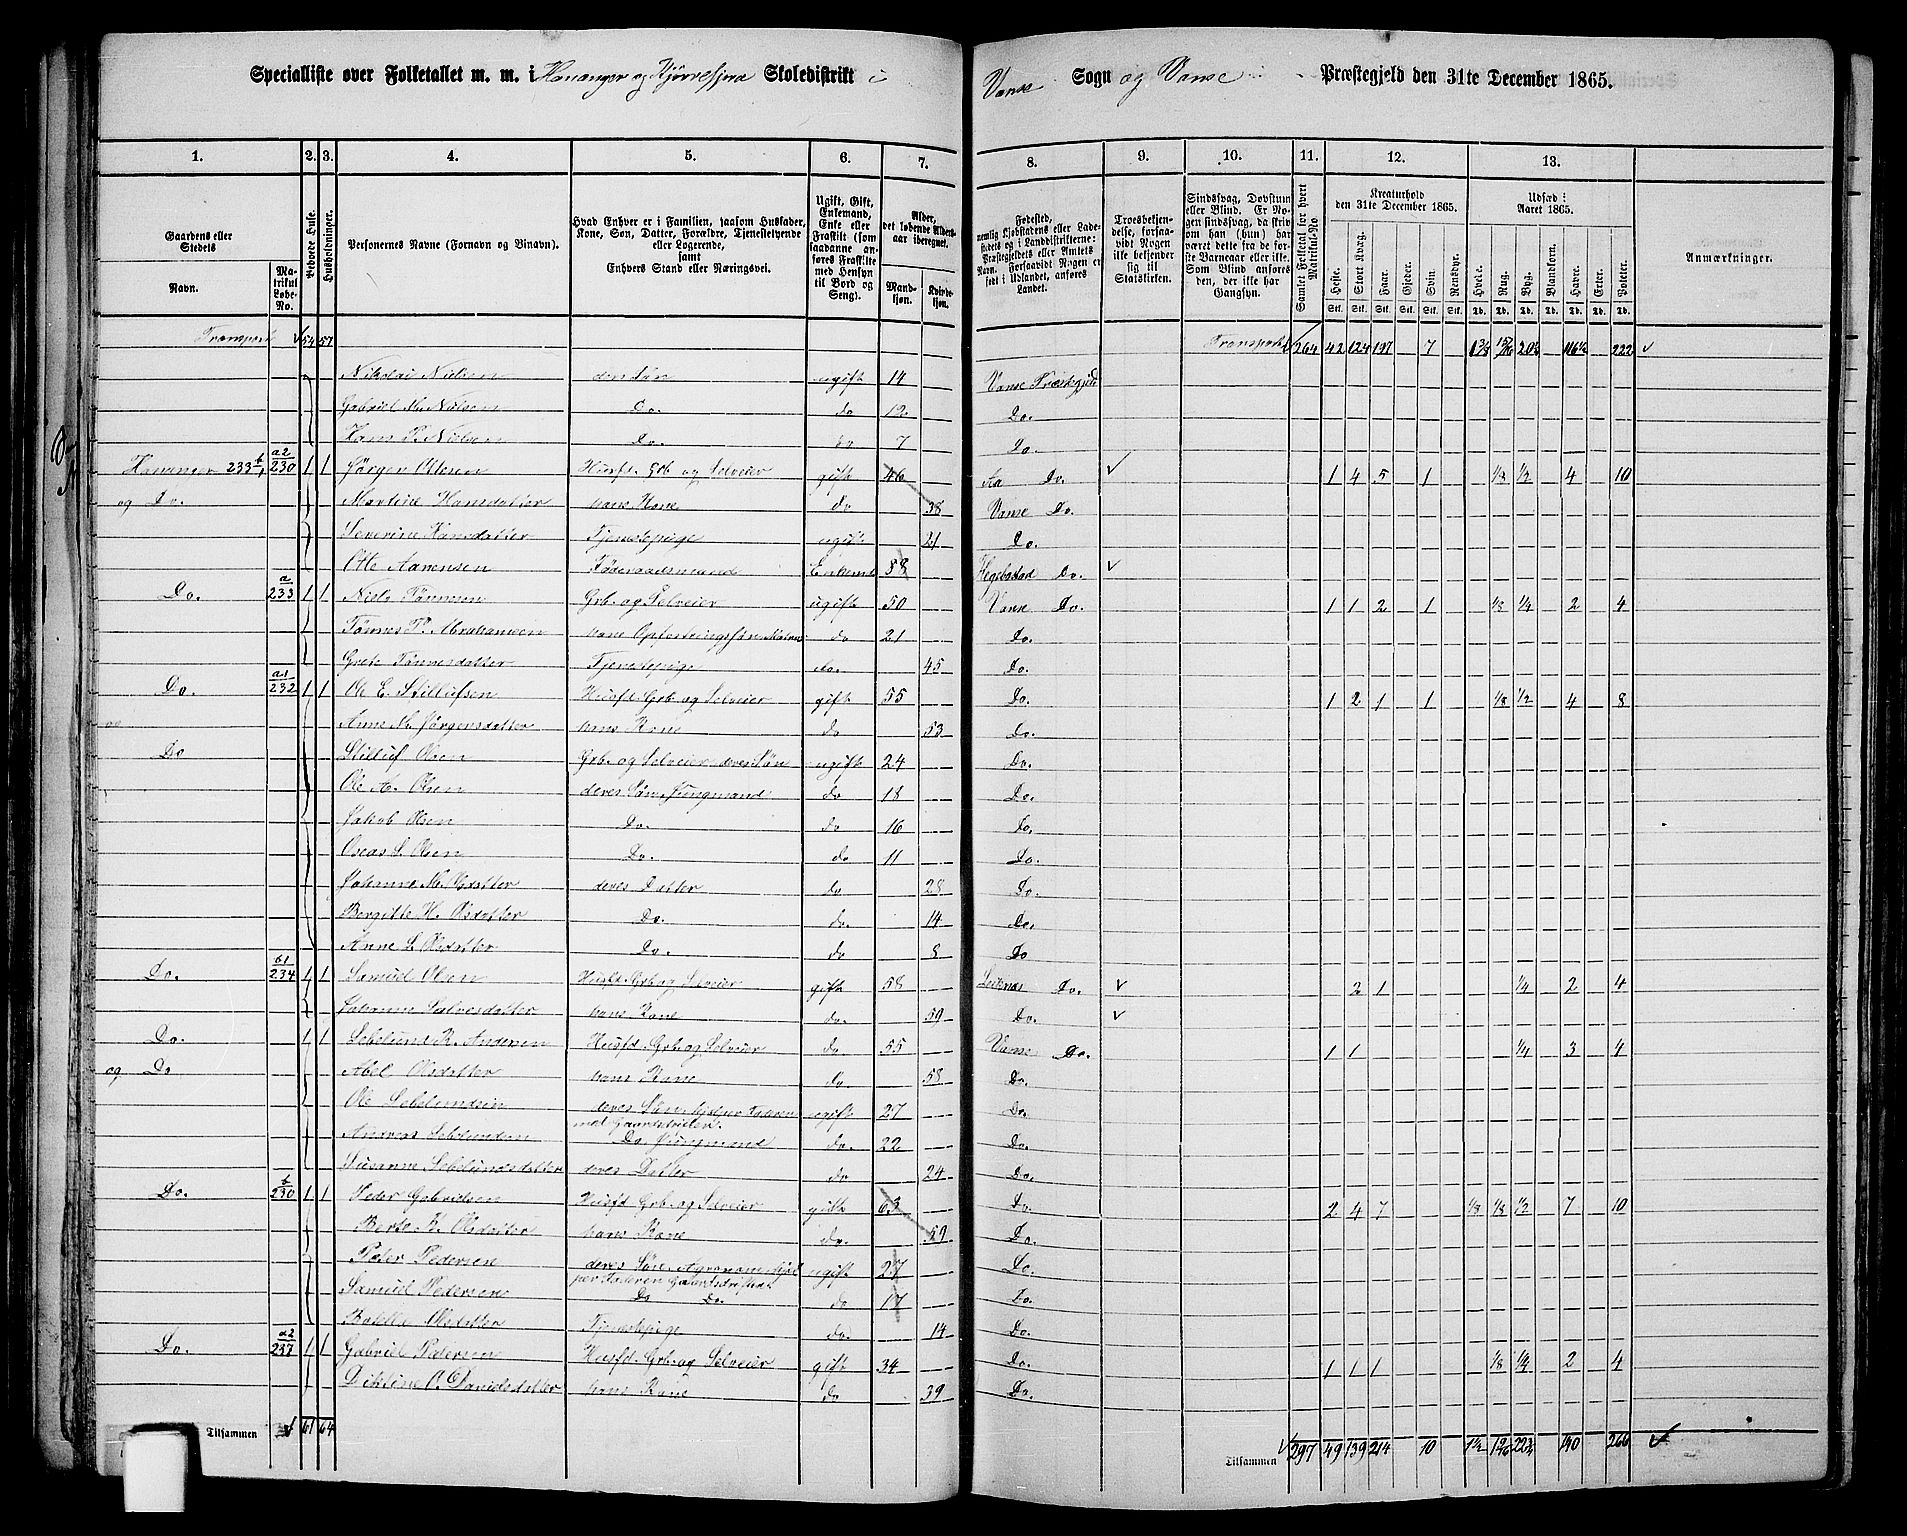 Specialliste over Folketallet m. m. i Hananger og Kjørrefjord Skoledistrikt i Vanse Sogn og Vanse Præstegjeld den 31te December 1865.
1. 2. 3. 4. 5. 6. 7. 8. 9. 10. 11. 12. 13.
Gaardens eller Stedets Navn. Matrikul Løbe-No. Beboede Huse. Husholdninger.
Personernes Navne (Fornavn og Binavn).
Hvad Enhver er i Familien, saasom Husfader, Kone, Søn, Datter, Forældre, Tjenestetyende eller Logerende, samt Enhvers Stand eller Næringsvei.
Ugift, Gift, Enkemand, Enke eller Fraskilt (som saadanne anføres Fraskilte med Hensyn til Bord og Seng).
Alder, det løbende Aldersaar iberegnet. Mandkjøn. Kvindekjøn.
Fødested, nemlig Kjøbstadens eller Ladestedets og i Landdistrikterne: Præstegjeldets eller Amtets Navn. Forsaavidt Nogen er født i Udlandet, anføres Landet.
Troesbekjendelse, forsaavidt Nogen ikke bekjender sig til Statskirken.
Sindssvag, Døvstum eller Blind. Er Nogen sindssvag, da skrives om han (hun) har været dette fra de første Barneaar eller ikke. Som Blind anføres den, der ikke har Gangsyn.
Samlet Folketal for hvert Matrikul-No
Kreaturhold den 31te December 1865. Heste. Stort Kvæg. Faar. Gjeder. Svin. Rensdyr.
Udsæd i Aaret 1865. Hvede. Rug. Byg. Blandkorn. Havre. Erter. Poteter.
Anmærkninger.
Transport √ 54 57 Transport √ 264 42 124 197 7 1 3/8 20 1/2 116 1/2 222 √
Nikolai Nielsen den Søn ugift 14 Vanse Præstegjeld
Gabriel M. Nielsen Do. do 12 Do.
Hans P. Nielsen Do. do 7 Do.
Hananger 233 b/1 a2/230 1 1 Jørgen Ottesen Husfd. Grb. og Selveier gift 46 Aa Do. √ 1 4 5 1 1/8 1/2 4 10
og Do. Martine Hansdatter hans Kone do 38 Vanse Do.
Severine Hansdatter Tjenestepige ugift 21 Do.
Otte Aanensen Føderaadsmand Enkemd 88 Hegebostad Do. √
Do. a/233 1 1 Niels Tønnesen Grb. og Selveier ugift 50 Vanse Do. 1 1 2 1 1/8 1/4 2 4
Tønnes T. Abrahamsen hans Opfostringssøn Matros do 21 Do.
Grete Tønnesdatter Tjenestepige do. 45 Do.
Do. a1/232 1 1 Ole E. Stillufsen Husfd. Grb. og Selveier gift 55 Do. 1 2 1 1 1/8 1/2 4 8
og Anne M. Jørgensdatter hans Kone do 53 Do.
Do Stilluf Olsen Grb. og Selveier deres Søn ugift 24 Do.
Ole A. Olsen deres Søn. Jungmand do 18 Do.
Jakob Olsen Do. do 16 Do.
Oseas S. Olsen Do. do 11 Do.
Johanne M. Olsdatter deres Datter do 28 Do.
Bergitte H. Olsdatter Do. do 14 Do.
Anne S. Olsdatter Do. do 8 Do
Do. b1/234 1 1 Samuel Olsen Husfd. Grb. og Selveier gift 58 Do. √ 2 1 1/4 2 4
Johanne Salvesdatter hans Kone do. 59 Do. √
Do. 1 1 Sebelund K. Andersen Husfd. Grb. og Selveier do. 55 Vanse Do. 1 1 1/4 3 4
og Do Abel Olsdatter hans Kone do 58 Do.
Ole Sebelundsen deres Søn hjelper Faderen med Gaardsbruget. ugift 27 Do.
Andreas Sebelundsen Do. Jungmand do. 22 Do.
Susanne Sebelundsdatter deres Datter do 24 Do.
Do. b/230 1 1 Peder Gabrielsen Husfd. Grb. og Selveier gift 63 Do. 2 4 7 1/8 1/8 1/2 7 10
Berte K. Olsdatter hans Kone do. 59 Do.
Peter Pedersen deres Søn. Agronom hjelper Faderen ugift 27 Do.
Samuel Pedersen Do Do. do 17 Do.
Olsdatter Tjenestepige do. 14 Do.
Do. a2/237 1 1 Gabriel Pedersen Husfd. Grb. og Selveier gift 34 Do. 1 1 1 1/8 1/4 2 4
Davidsdatter hans Kone do 39 Do.
Tilsammen √ 61 64 Tilsammen √ 297 49 139 214 10 140 266 √